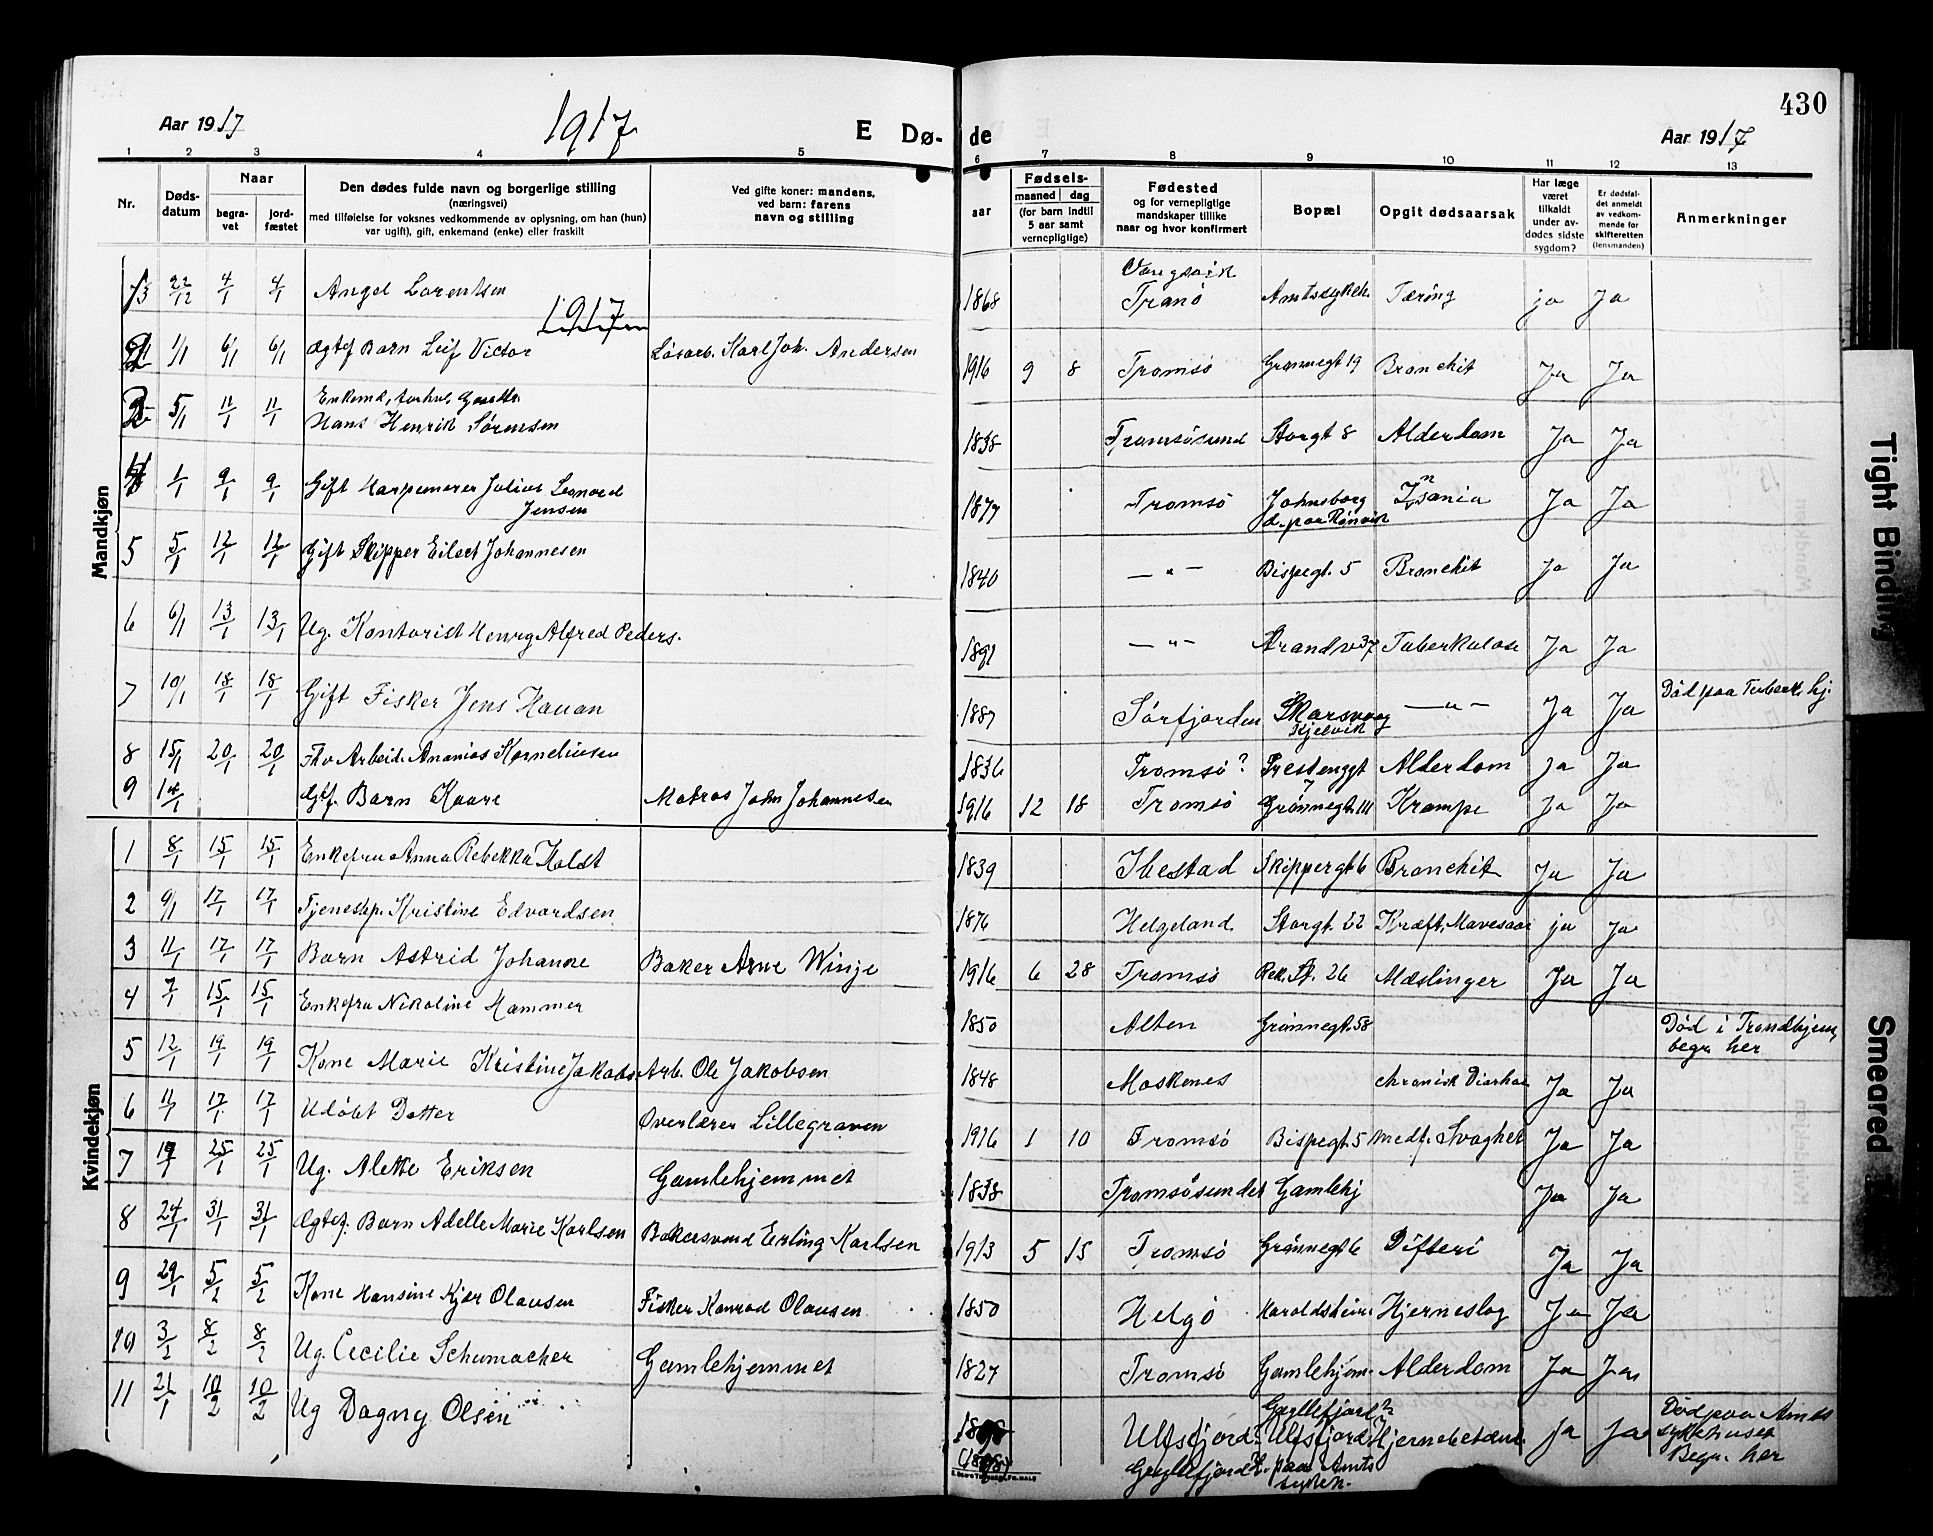 430
Aar 1917
1917
E Dø- de
Aar 1917
1 2 3 4 5 6 7 8 9 10 11 12 13
Nr.
Døds-
datum
Naar
begra-
vet
jord-
fæstet
Den dødes fulde navn og borgerlige stilling
(næringsvei)
med tilføielse for voksnes vedkommende av oplysning, om han (hun)
var ugift), gift, enkemand (enke) eller fraskilt
Ved gifte koner: mandens,
ved barn: farens
navn og stilling
aar
Fødsels-
maaned dag
(for barn indtil
5 aar samt
vernepligtige)
Fødested
og for vernepligtige
mandskaper tillike
naar og hvor konfirmert
Bopæl
Opgit dødsaarsak
Har læge
været
tilkaldt
under av-
dødes sidste
sygdom?
Er dødsfal-
det anmeldt
av vedkom-
mende for
skifteretten
(lensmanden)
Anmerkninger
Mandkjøn
22/12 4/1 4/1 Angel Lorentsen 1868 Tranö Amtssykeh. Tæring ja Ja
1917
1/1 6/1 6/1 Ægtef Barn Leif Victor Løsarb. Karl Joh. Andersen 1916 9 8 Tromsö Grønnegt 19 Bronchit Ja Ja
5/1 11/1 11/1 Enkemd.
Hans Henrik Sörensen 1838 Tromsösund Storgt 8 Alderdom Ja Ja
4 1/1 9/1 9/1 Gift Harpunerer Julius Leonard
Jensen 1877 Tromsö Johnsborg
d. paa Rönvik Ja Ja
5 5/1 12/1 12/1 Gift Skipper Eilert Johannesen 1840 — " — Bispegt. 5 Bronchit Ja Ja
6 6/1 13/1 13/1 Ug. Kontorist Henry Alfred Peders. 1891 — " — Strandv 37 Tuberkulose Ja Ja
7 10/1 18/1 18/1 Gift Fisker Jens Hauan 1887 Sörfjorden Skarsvaag
Kjelvik — " — Ja Ja Död paa Tuberk. hj.
8 15/1 20/1 20/1 Fhv Arbeid. Ananias Korneliusen 1836 Tromsö? Prestenggt
7 Alderdom Ja Ja
9 14/1 Ægtf. Barn Kaare Matros John Johannesen 1916 12 18 Tromsö Grönnegt. 111 Krampe Ja Ja
Kvindekjøn
1 8/1 15/1 15/1 Enkefru Anna Rebekka Holdt 1839 Ibestad Skippergt 6 Bronchit Ja Ja
2 9/1 17/1 17/1 Tjenestep. Kristine Edvardsen 1876 Helgeland Storgt. 22 Kræft, Mavesaar ja Ja
3 11/1 17/1 17/1 Barn Astrid Johanne Baker Arne Winje 1916 6 28 Tromsö 26 Mæslinger Ja Ja
4 7/1 15/1 15/1 Enkefru Nikoline Hammer 1850 Alten Grönnegt. 58 Död i Trondhjem,
begr. her
5 12/1 19/1 19/1 Kone Marie Kristine Jakobs. Arb. Ole Jakobsen 1848 Moskenes chronisk Diarhoe Ja Ja
6 11/1 17/1 17/1 Udöbt Datter Overlærer Lillegraven 1916 1 10 Tromsö Bispegt. 5 Medf. Svaghet Ja Ja
7 19/1 25/1 25/1 Ug. Alette Eriksen Gamlehjemmet 1838 Tromsösundet Gamlehj Ja Ja
8 24/1 31/1 31/1 Ægtef. Barn Adelle Marie Karlsen Bakersvend Erling Karlsen 1913 5 15 Tromsö Grönnegt 6 Difteri Ja Ja
9 29/1 5/2 5/2 Kone Hansine Kjær Olausen Fisker Konrad Olausen 1850 Helgö Haroldsheim Hjerneslag Ja Ja
10 3/2 8/2 8/2 Ug. Cecilie Schumacher Gamlehjemmet 1827 Tromsö Gamlehjem. Alderdom Ja Ja
11 21/1 10/2 10/2 Ug Dagny Olsen Ulfsfjord?
Gryllefjord Gryllefjord?
Ulfsfjord
d. paa Amts
sykeh. Hjernebetænd. Ja Ja Död paa Amts
sykehuset
Begr. her
Tight Binding
Smeared